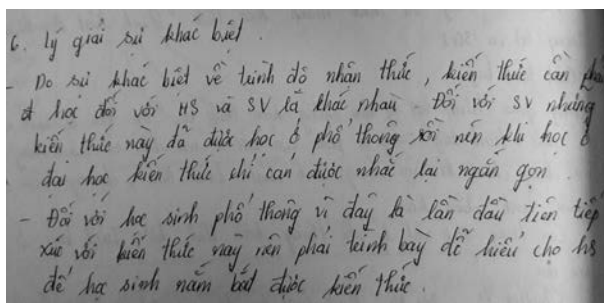 6. Lý giải sự khác biệt.
- Do sự khác biệt về trình độ nhận thức, kiến thức cần phải
học đối với HS và SV là khác nhau. Đối với SV những
kiến thức này đã được học ở phổ thông rồi nên khi học ở
đại học kiến thức chỉ cần được nhắc lại ngắn gọn.
- Đối với học sinh phổ thông vì đây là lần đầu tiên tiếp
xúc với kiến thức này nên phải trình bày dễ hiểu cho hs
để học sinh nắm bắt được kiến thức.